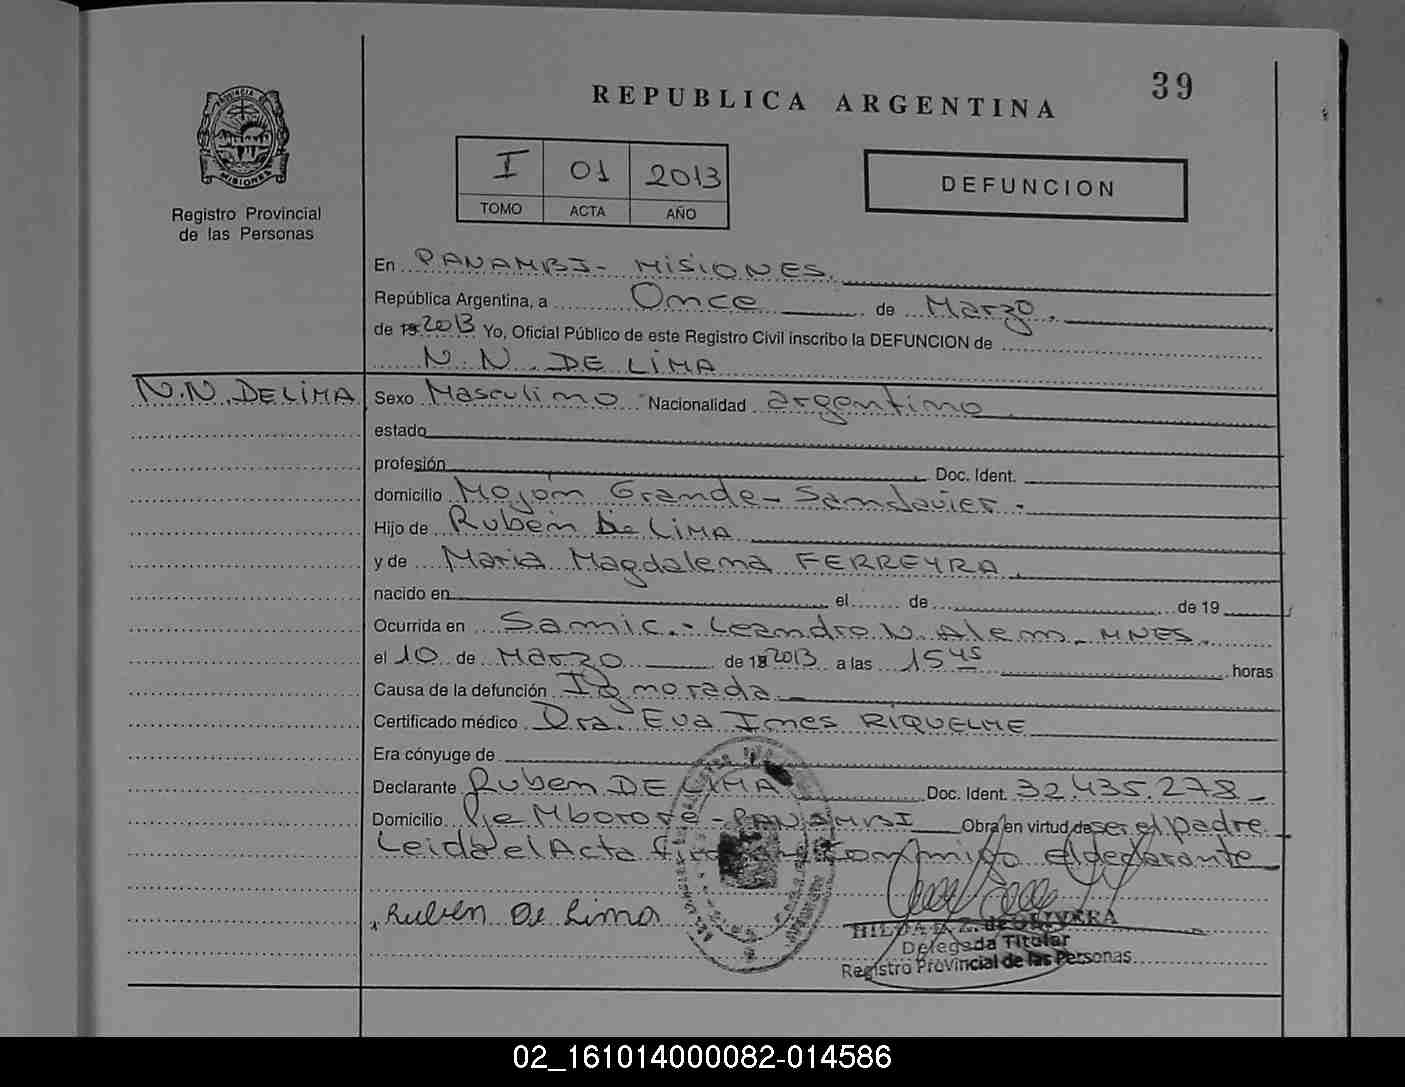 39
REPUBLICA ARGENTINA
PROVINCIA DE
MISIONES
I 01 2013
TOMO ACTA AÑO
DEFUNCION
Registro Provincial
de las Personas
En PANAMBI - MISIONES.
República Argentina, a Once de Marzo.
de 19 2013 Yo, Oficial Público de este Registro Civil inscribo la DEFUNCION de
N. N. DE LIMA
N.N. DE LIMA
Sexo Masculino Nacionalidad argentino.
estado
profesión Doc. Ident.
domicilio Mojón Grande - San Javier.
Hijo de Ruben De LIMA
y de Maria Magdalena FERREYRA.
nacido en el de de 19
Ocurrida en Samic. - Leandro N. Alem - MNES.
el 10 de Marzo de 19 2013 a las 15 45 horas
Causa de la defunción Ignorada
Certificado médico Dra. Eva Ines RIQUELME
Era cónyuge de
Declarante Ruben DE LIMA Doc. Ident. 32.435.278
Domicilio Pje Mborore - PANAMBI Obra en virtud de ser el padre.
Leida el Acta conmigo el declarante
Ruben De Lima
HILDA Z. de OLIVERA
Delegada Titular
Registro Provincial de las Personas
02_161014000082-014586